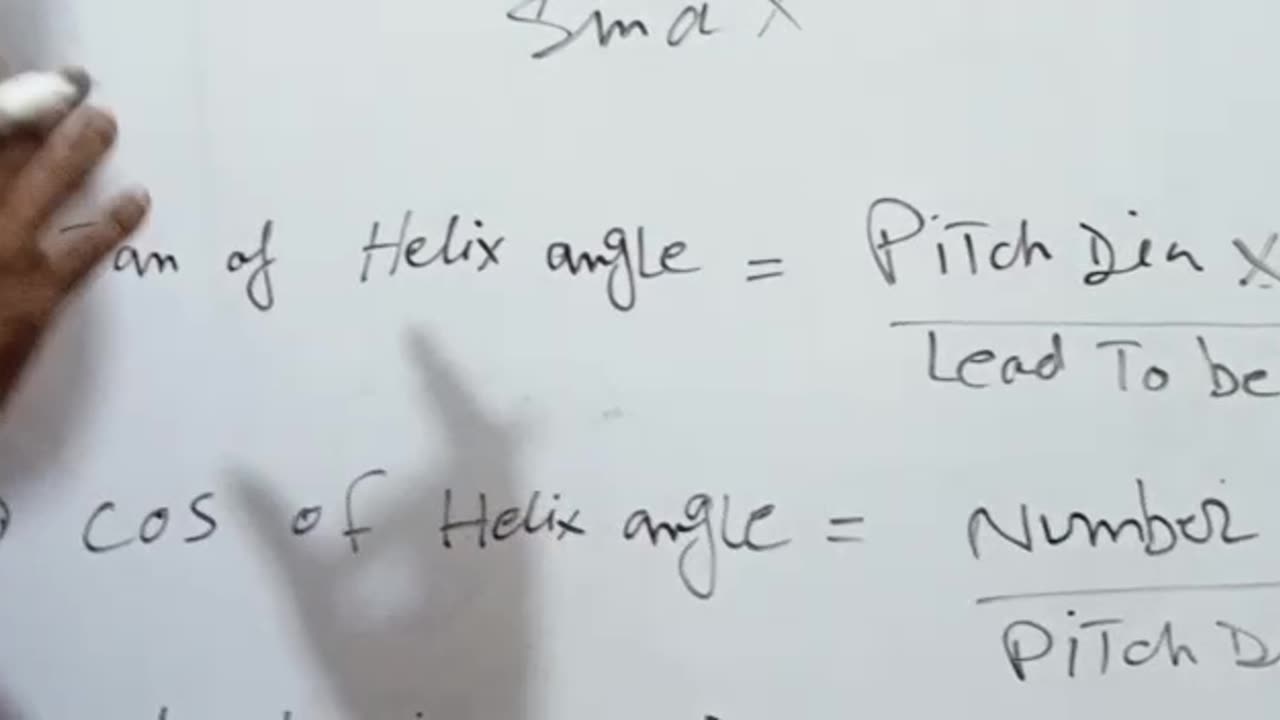 Tan of Helix angle = PiTch Dia X
Lead To be
Cos of Helix angle = Number
PiTch D